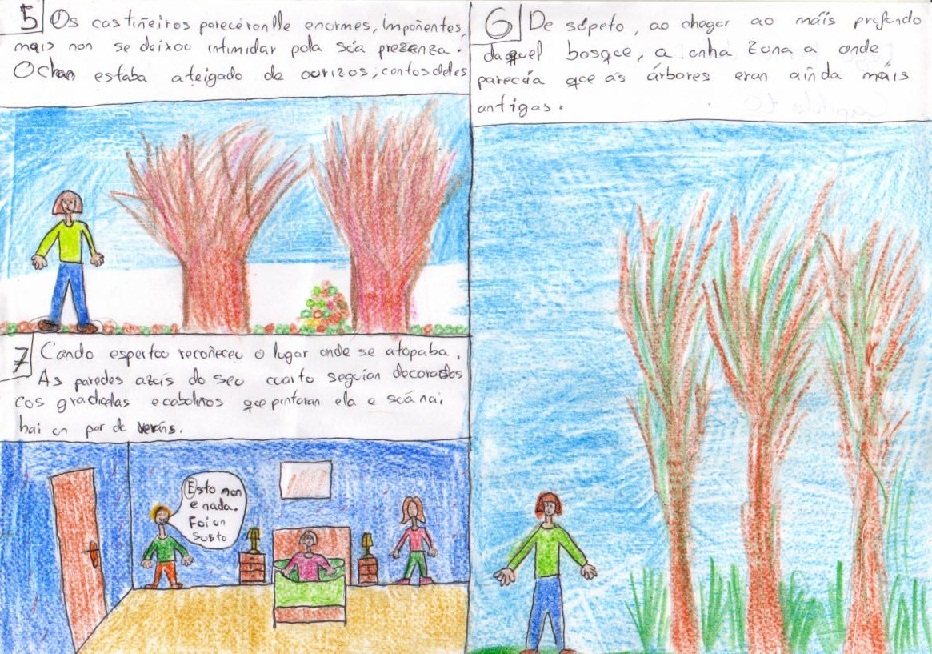 5 Os castiñeiros pareceronlle enormes, impoñentes,
mais non se deixou intimidar pola súa prezenza.
O chan estaba ateigado de ourizos, centos deles
6 De súpeto, ao chegar ao máis profundo
daquel bosque, a unha zona a onde
parecía que as árbores eran aínda máis
antigas.
7 Cando espertou recoñeceu o lugar onde se atopaba.
As paredes azuis do seu cuarto seguían decorados
cos gradielas e cabaliños que pintaran ela e súa nai
hai un par de veráns.
Esto non
e nada.
Foi un
susto